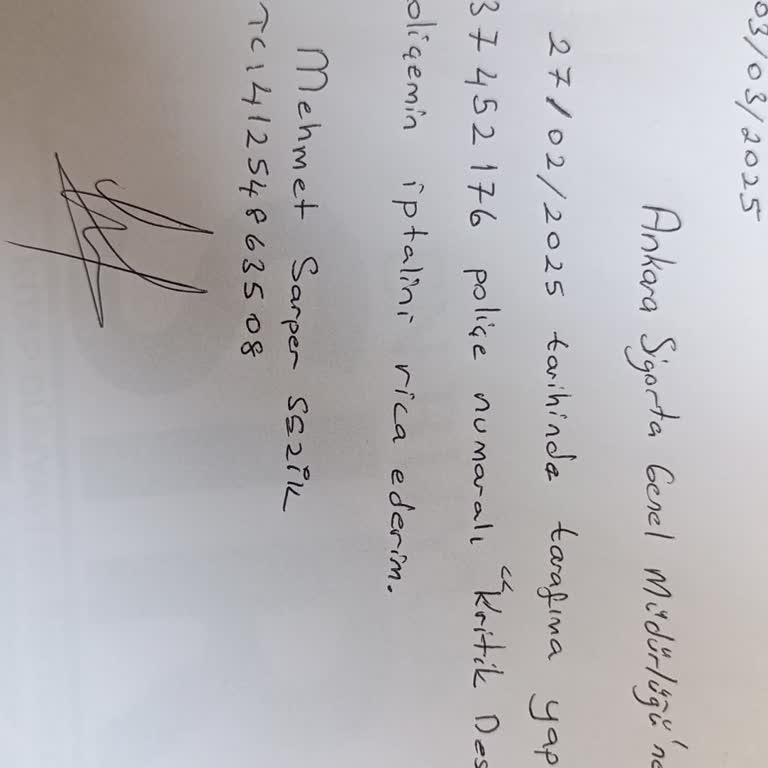 03/03/2025
Ankara Sigorta Genel Müdürlüğü'ne
27/02/2025 tarihinde tarafıma yap
37452176 poliçe numaralı "Kritik Des
oliçemin iptalini rica ederim.
Mehmet Sarper Sezik
TC:41254863508